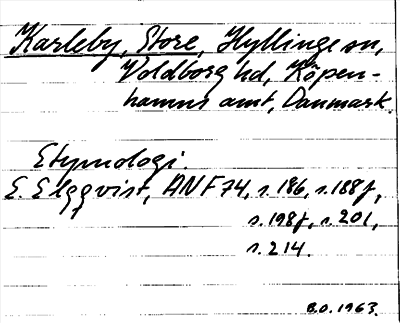 Karleby, Store, Hyllinge sn,
Voldborg hd, Köpen-
hamns amt, Danmark.
Etymologi.
E. Elgqvist, ANF 74, s. 186, s. 188f,
s. 198f, s. 201,
s. 214.
B.O. 1963.